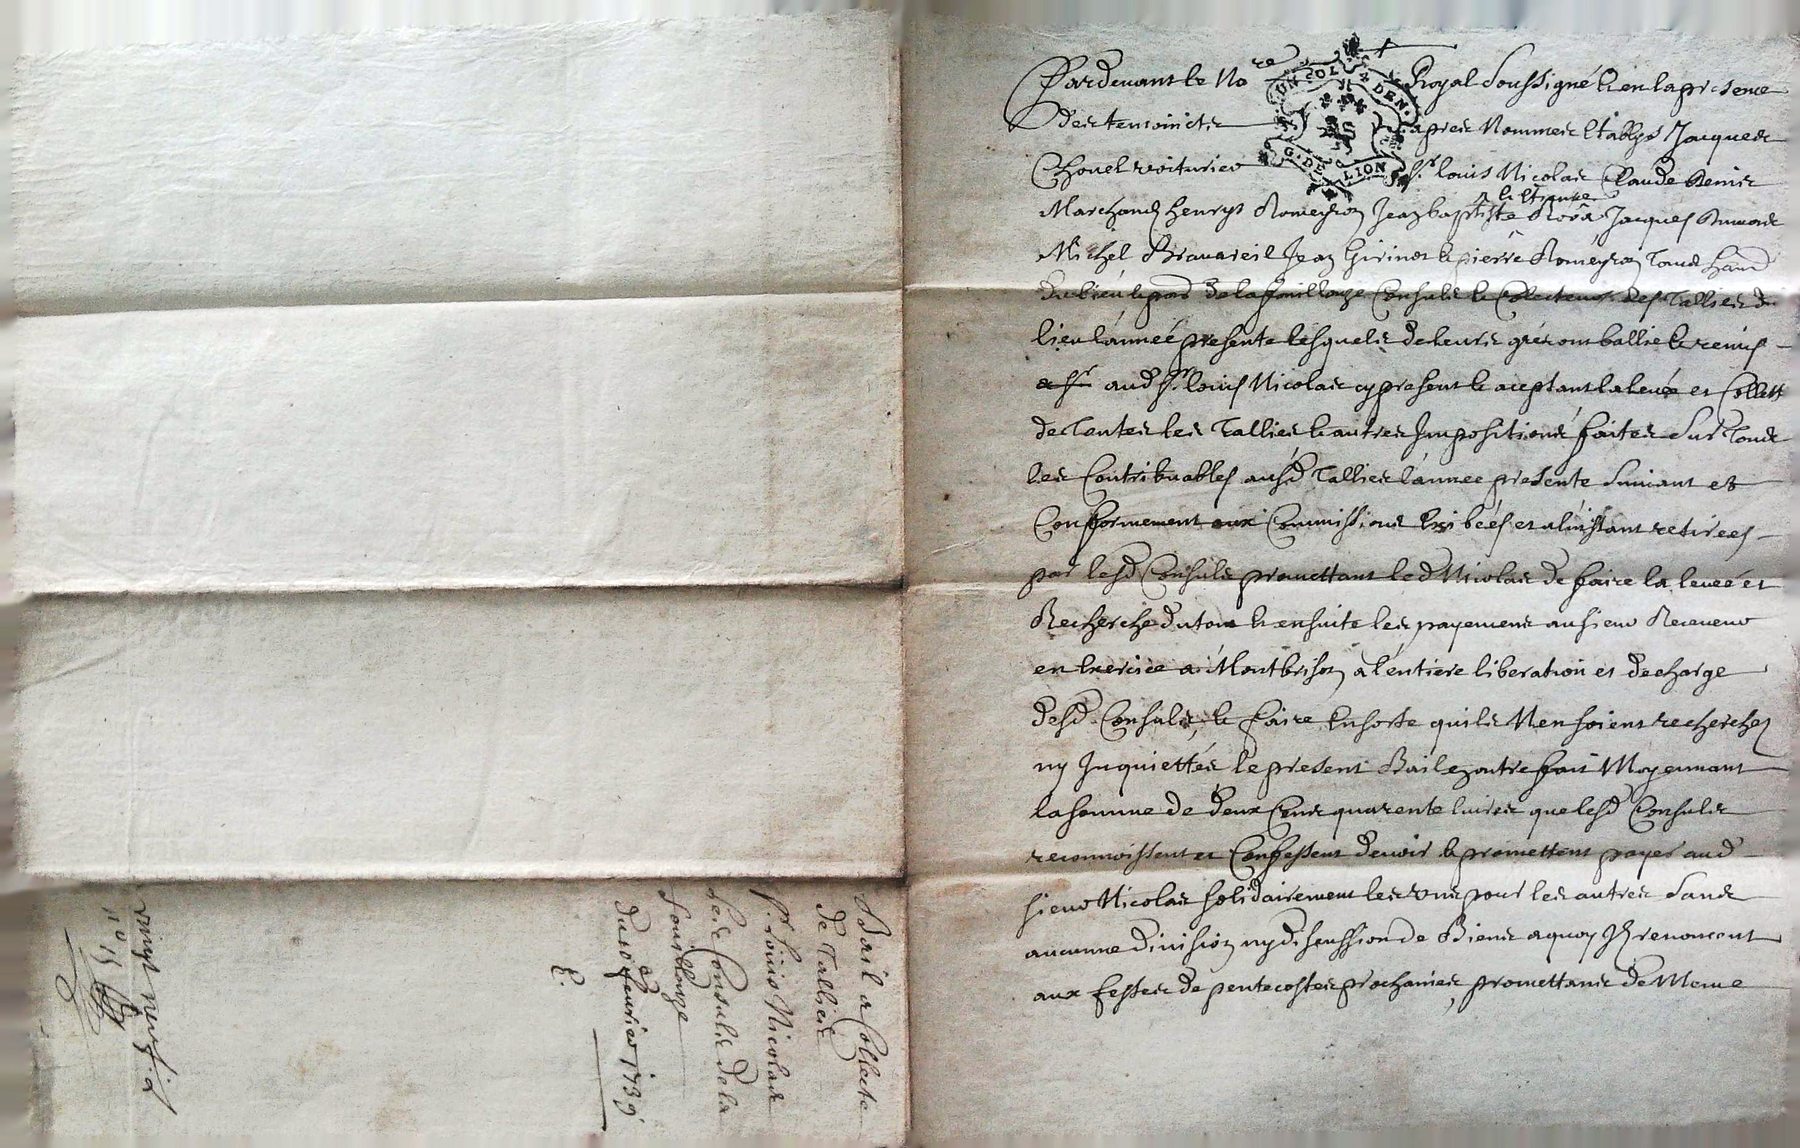 Pardevant le No.re Royal Soussigné & en la presence
des temoins cy apres Nommes Etablys Jacques
Chovel voiturier Sr. louis Nicolas Claude Benis
& Etienne
Marchand henrys Romeyron Jean baptiste Jacques
Michel Jean Girinot & pierre Romeyron Tous
du lieu de la fouillouze Consuls & Colecteurs des Tallies du
lieu l'année presente lesquels de leurs gréz ont ballié & remis
aud Sr. louis Nicolas cy present & aceptant la levée et Collette
de Toutes les Tallies & autres Impositions faites Sur Tous
les Contribuables ausd Tallies l'année presente Suivant et
Conformement aux Commissions Exibées et a l'instant retirées
par lesd Consuls promettant led Nicolas de faire la levée et
Recherche du tout & ensuite les payemens au sieur Receveur
en Exercice a Montbrison a l'entiere liberation et decharge
desd. Consuls, & faire Ensorte quils N'en soient recherchez
ny Inquiettés le present Bail fait Moyennant
la somme de deux Cens quarente livres que lesd Consuls
reconnoissent et Confessent devoir & promettent payer aud
sieur Nicolas solidairement les uns pour les autres Sans
aucunne division ny discussion de Biens a quoy Ils renoncent
aux festes de pentecostes prochaines, promettans de Meme
Bail a Collecte
de Tallies
Sr. louis Nicolas
a
les Consuls de la
fouillouze
du 10 fevrier 1739
E.
vingt neuf
n° 15